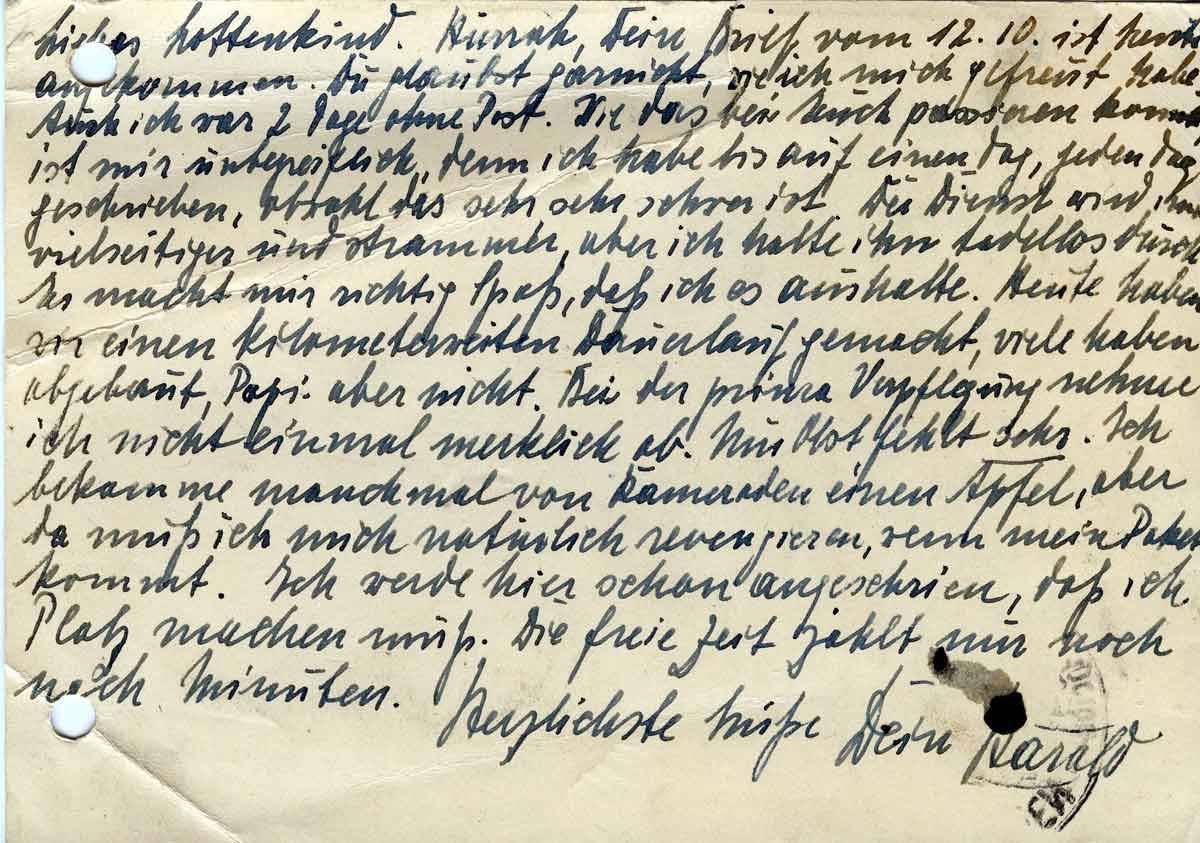 Liebes Lottenkind. Hurrah, Dein Brief vom 12.10. ist heute
angekommen. Du glaubst garnicht, wie ich mich gefreut habe
Auch ich war 2 Tage ohne Post. Wie das bei Euch passieren konnte,
ist mir unbegreiflich, denn ich habe bis auf einen Tag, jeden Tag
geschrieben, obwohl das sehr sehr schwer ist. Der Dienst wird immer
vielseitiger und strammer, aber ich halte ihn tadellos durch
Es macht mir richtig Spaß, daß ich es aushalte. Heute haben
wir einen kilometerweiten Dauerlauf gemacht, viele haben
abgebaut, Papi aber nicht. Bei der prima Verpflegung nehme
ich nicht einmal merklich ab. Nur Obst fehlt sehr. Ich
bekomme manchmal von Kameraden einen Apfel, aber
da muß ich mich natürlich revengieren, wenn mein Paket
kommt. Ich werde hier schon angeschrien, daß ich
Platz machen muß. Die freie Zeit zählt nur noch
nach Minuten.
Herzlichste Küße Dein Harald